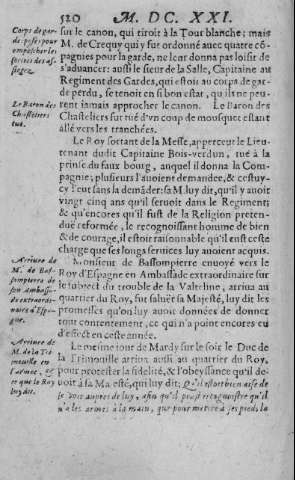 520 M. DC. XXI.
Corps de gar-
de posé pour
empescher les
sorties des as-
siegez.
sur le canon, qui tiroit à la Tour blanche; mais
M. de Crequy qui y fut ordonné auec quatre cõ-
pagnies pour la garde, ne leur donna pas loisir de
s'aduancer: aussi le sieur de la Salle, Capitaine au
Regiment des Gardes, qui estoit au corps de gar-
de perdu, se tenoit si bon estat, qu ils ne peu-
rent iamais approcher le canon. Le Baron des
Le Baron des
Chasteliers
tué.
Chasteliers fut tué d'vn coup de mousquet estant
allé vers les tranchées.
Le Roy sortant de la Messe, apperceut le Lieu-
tenant dudit Capitaine Bois-verdun, tué à la
prinse du faux bourg, auquel il donna la Com-
pagnie; plusieurs l'auoient demandee, & cestuy-
cy l'eut sans la demãder: sa M. luy dit, qu'il y auoit
vingt cinq ans qu'il seruoit dans le Regiment;
& qu'encores qu'il fust de la Religion preten-
duë reformée, le recognoissant homme de bien
& de courage, il estoit raisonnable qu'il eust ceste
charge que ses longs seruices luy auoient acquis.
Arriuee de
M. de Bas-
sompierre de
son Ambassa-
de extraordi-
naire d'Espa-
gne.
Monsieur de Bassompierre enuoyé vers le
Roy d'Espagne en Ambassade extraordinaire sur
le subiect du trouble de la Valteline, arriua au
quartier du Roy, fut saluër sa Majesté, luy dit les
promesses qu'on luy auoit données de donner
tout contentement, ce qui n'a point encores eu
d'effect en ceste année.
Arriuee de
M. de la Tri-
mouille en
l'armee, &
ce que le Roy
luy dit.
Le mesme iour de Mardy sur le soir le Duc de
la Trimouille arriua aussi au quartier du Roy,
pour protester la fidelité, & l'obeyssance qu'il de-
uoit à sa Majesté, qui luy dit; Qu'il estoit bien aise de
le voir aupres de luy, afin qu'il peust recognoistre qu'il
n'a les armes à la main, que pour mettre à ses pieds la